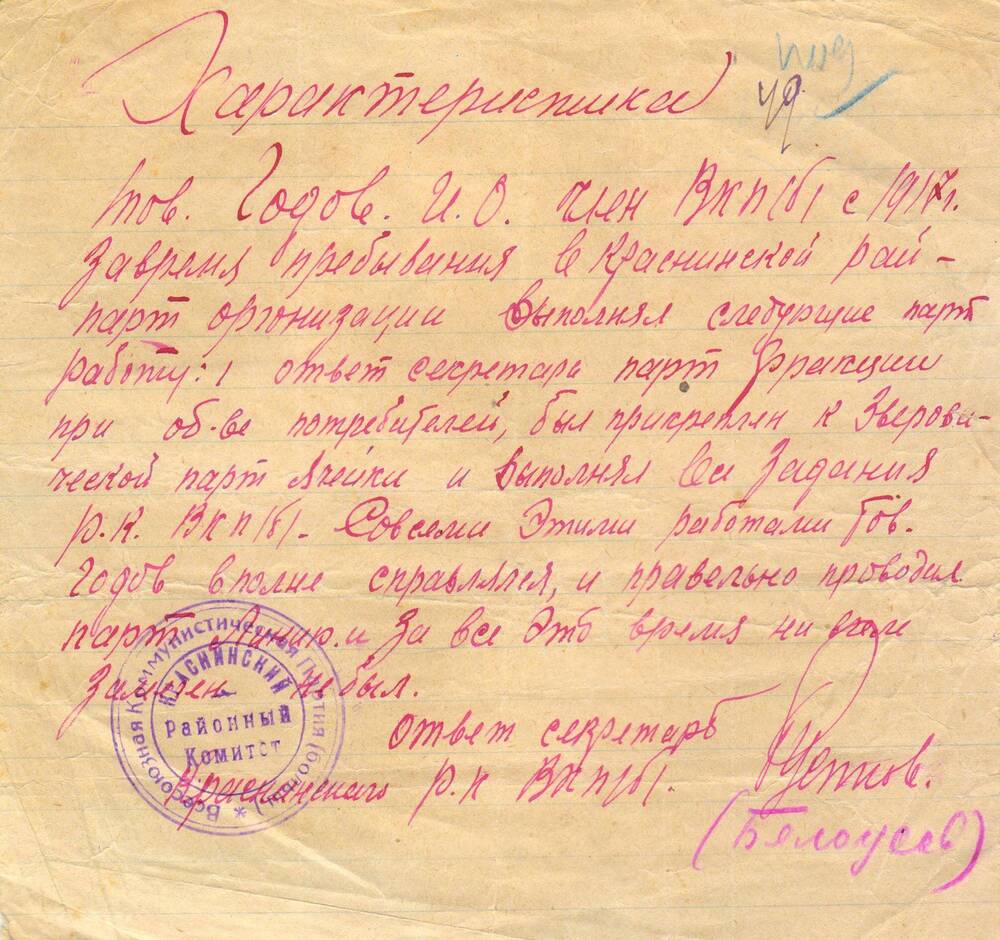 Характеристика
уд.
тов. Годов. И. О. член ВКП(б) с 1917г.
За время пребывания в Краснинской рай-
парт оргонизации выполнял следующие парт
работу: 1 ответ секретарь парт фракции
при об-ве потребителей, был прикреплен к Зверови-
ческой парт ячейки и выполнял все задания
р.К. ВКП(б). Совсеми этими работами Тов.
Годов вполне справлялся, и правельно проводил
парт и За все это время ни
Замечен небыл.
ответ секретарь
Краснинского р.К ВКП(б).
(Белоусов)
Всесоюзная Коммунистическая Партия (больш.)
КРАСНИНСКИЙ
Районный
Комитет